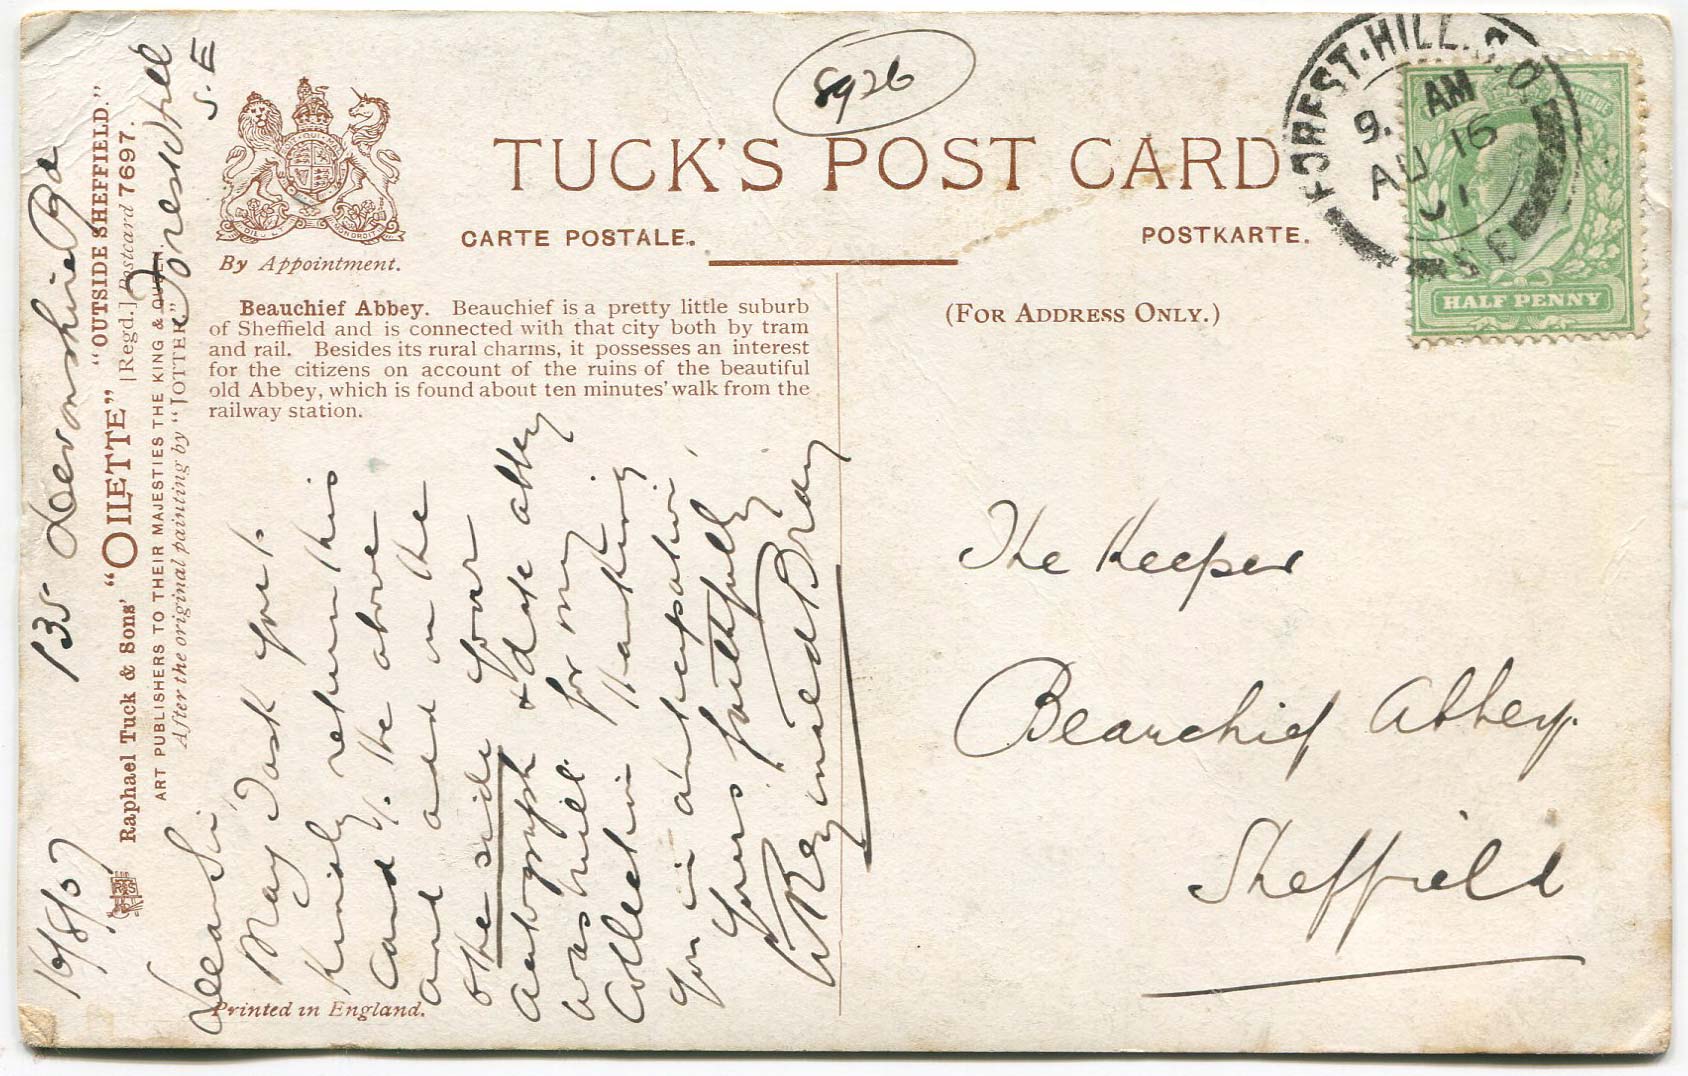 8926
TUCK'S POST CARD
CARTE POSTALE.
POSTKARTE.
By Appointment.
(FOR ADDRESS ONLY.)
FOREST·HILL.S.O
9. AM
AU 16
S.E
HALF PENNY
Beauchief Abbey. Beauchief is a pretty little suburb
of Sheffield and is connected with that city both by tram
and rail. Besides its rural charms, it possesses an interest
for the citizens on account of the ruins of the beautiful
old Abbey, which is found about ten minutes' walk from the
railway station.
Printed in England.
Raphael Tuck & Sons' "OILETTE" "OUTSIDE SHEFFIELD."
[Regd.] Postcard 7697.
ART PUBLISHERS TO THEIR MAJESTIES THE KING & QUEEN.
After the original painting by "JOTTER"
16/8/07
135 Devonshire Rd
Forest Hill
S.E
Dear Sir,
May I ask you t.
kindly return this
card t. the above
and add on the
other side your
autograph & date abbey
was built for my
collection Thanking
you in anticipation
Yours faithfully
W Reginald Bray
The Keeper
Beauchief Abbey.
Sheffield